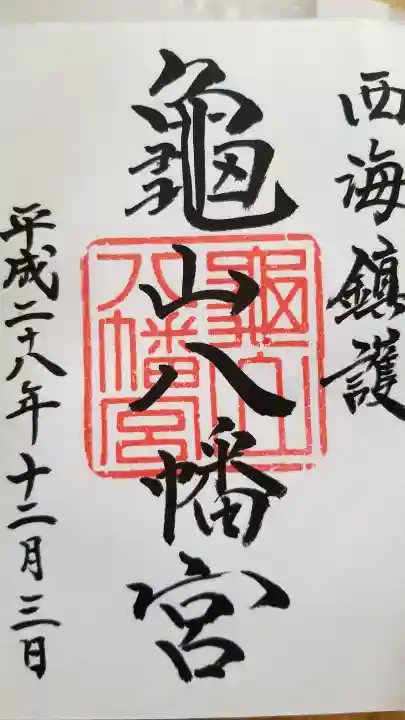 西海鎮護
龜山八幡宮
龜山八幡宮
平成二十八年十二月三日